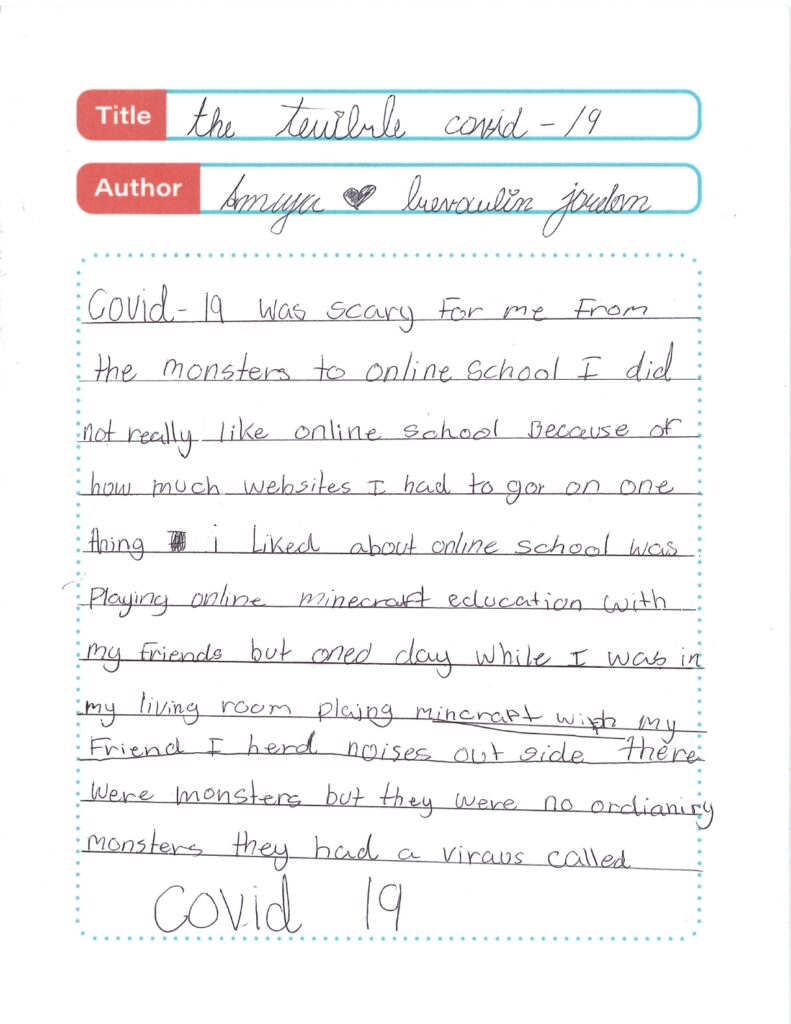 Title the terribile covid - 19
Author Amiya jordom
Covid - 19 was scary for me from
the monsters to online school I did
not really like online school Because of
how much websites I had to gor on one
thing i liked about online school was
Playing online minecraft education with
my friends but oned day while I was in
my living room plaing mincrapt with my
Friend I herd noises out side there
were monsters but they were no ordianiry
monsters they had a viraus called
Covid 19